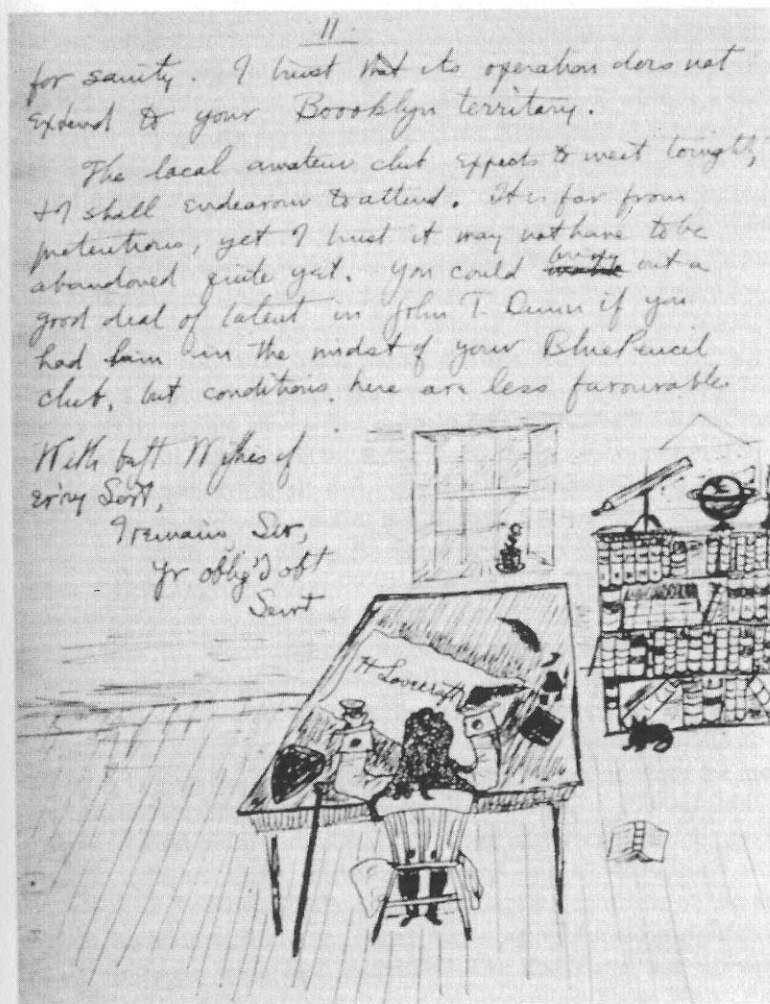 11.
for sanity. I trust that its operation does not
extend to your Boooklyn territary.
The local amateur club expects to meet tonight,
& I shall endeavour to attend. It is far from
pretentious, yet I trust it may not have to be
abandoned quite yet. You could bring out a
good deal of latent in John T. Dunn if you
had him in the midst of your Blue Pencil
club, but conditions here are less favourable.
With best Wishes of
ev'ry Sort,
I remain, Sir,
Yr oblig'd obt
Servt
H Lovecraft